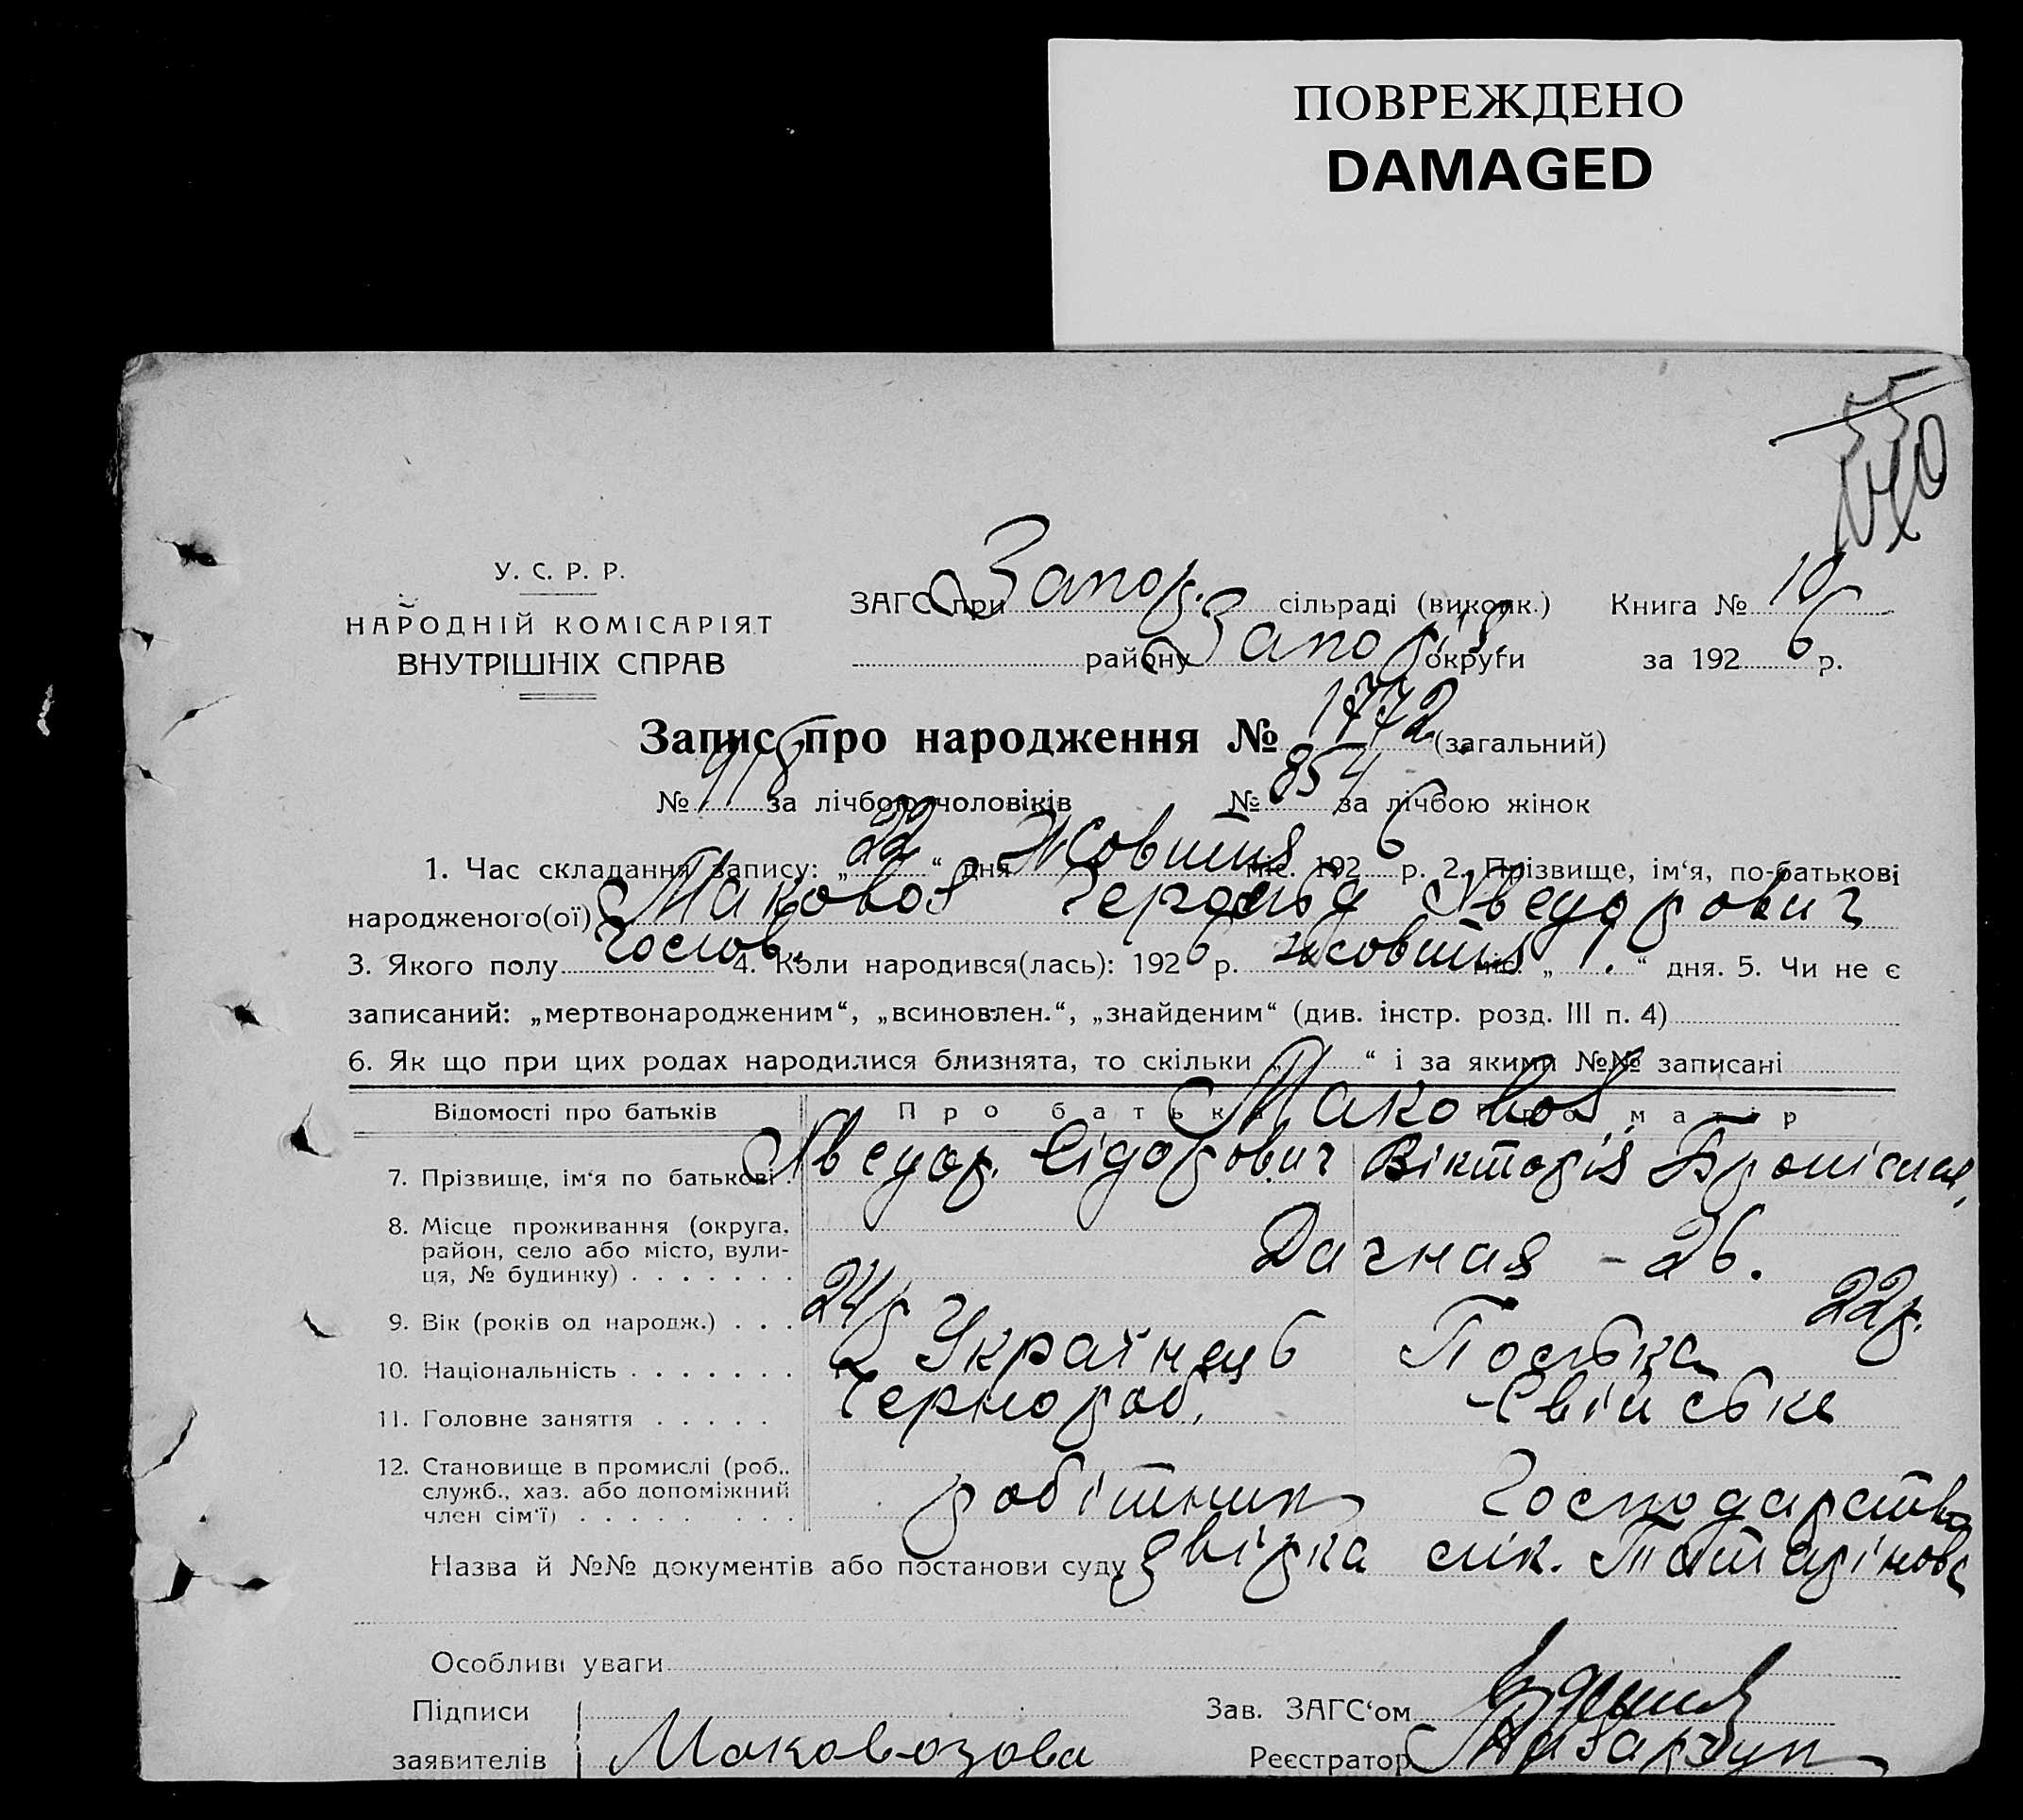 ПОВРЕЖДЕНО
DAMAGED
У. С. Р. Р.
НАРОДНІЙ КОМІСАРІЯТ
ВНУТРІШНІХ СПРАВ
ЗАГС при Запор. сільраді (виконк.) Книга № 10
району Запоріз. округи за 1926 р.
Запис про народження № 1772 (загальний)
№ 918 за лічбою чоловіків № 854 за лічбою жінок
1. Час складання запису: „22“ дня Жовтня міс. 1926 р. 2. Прізвище, ім‘я, по-батькові
народженого(ої) Маковоз Герольд Хведорович
3. Якого полу чолов. 4. Коли народився(лась): 1926 р. жовтня міс. „1.“ дня. 5. Чи не є
записаний: „мертвонародженим“, „всиновлен.“, „знайденим“ (див. інстр. розд. III п. 4)
6. Як що при цих родах народилися близнята, то скільки „ “ і за якими №№ записані
Відомості про батьків Про батька Про матір
Маковоз
7. Прізвище, ім‘я по батькові . Хведор. Сідорович Вікторія Броніслав.
8. Місце проживання (округа,
район, село або місто, вули-
ця, № будинку) . . . . . . . Дачная - 26.
9. Вік (років од народж.) . . . 24 р 22 р.
10. Національність . . . . . . . Українець Полька
11. Головне заняття . . . . . Чернороб. Свійське
12. Становище в промислі (роб.,
служб., хаз. або допоміжний
член сім‘ї) . . . . . . . . робітник Господарство
Назва й №№ документів або постанови суду двірка лік. Татарінова
Особливі уваги
Підписи Зав. ЗАГС‘ом
заявителів Маковозова Реєстратор